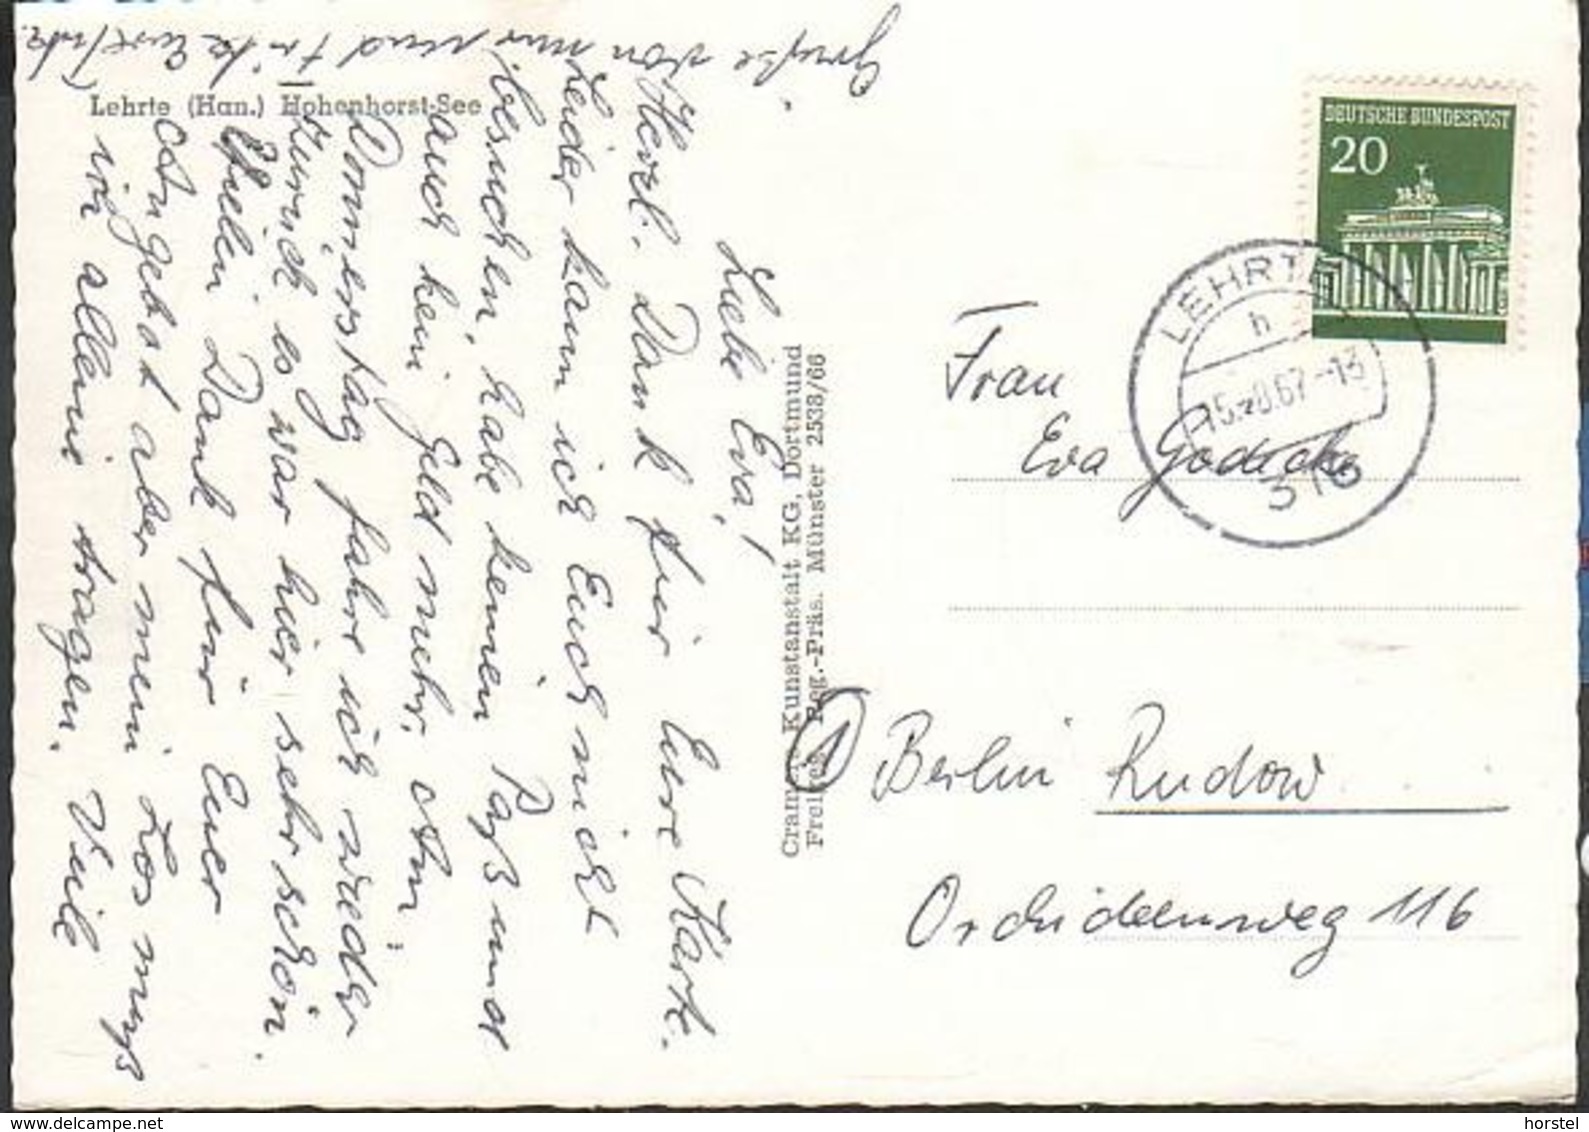 Lehrte (Han.) Hohenhorst-See
Liebe Eva!
Herzl. Dank für Eure Karte.
Leider kann ich Euch nicht
besuchen, habe keinen Paß und
auch kein Geld mehr. Am
Donnerstag fahre ich wieder
zurück es war hier sehr schön.
Vielen Dank für Euer
Angebot aber mein Los muß
ich allein tragen. Viele
Grüße von mir und
Cramers Kunstanstalt KG, Dortmund
Freigeg. Reg.-Präs. Münster 2538/66
DEUTSCHE BUNDESPOST
20
LEHRTE
h
67-13
316
Frau
Eva
1 Berlin Rudow
Orchideenweg 116
horstel
www.delcampe.net